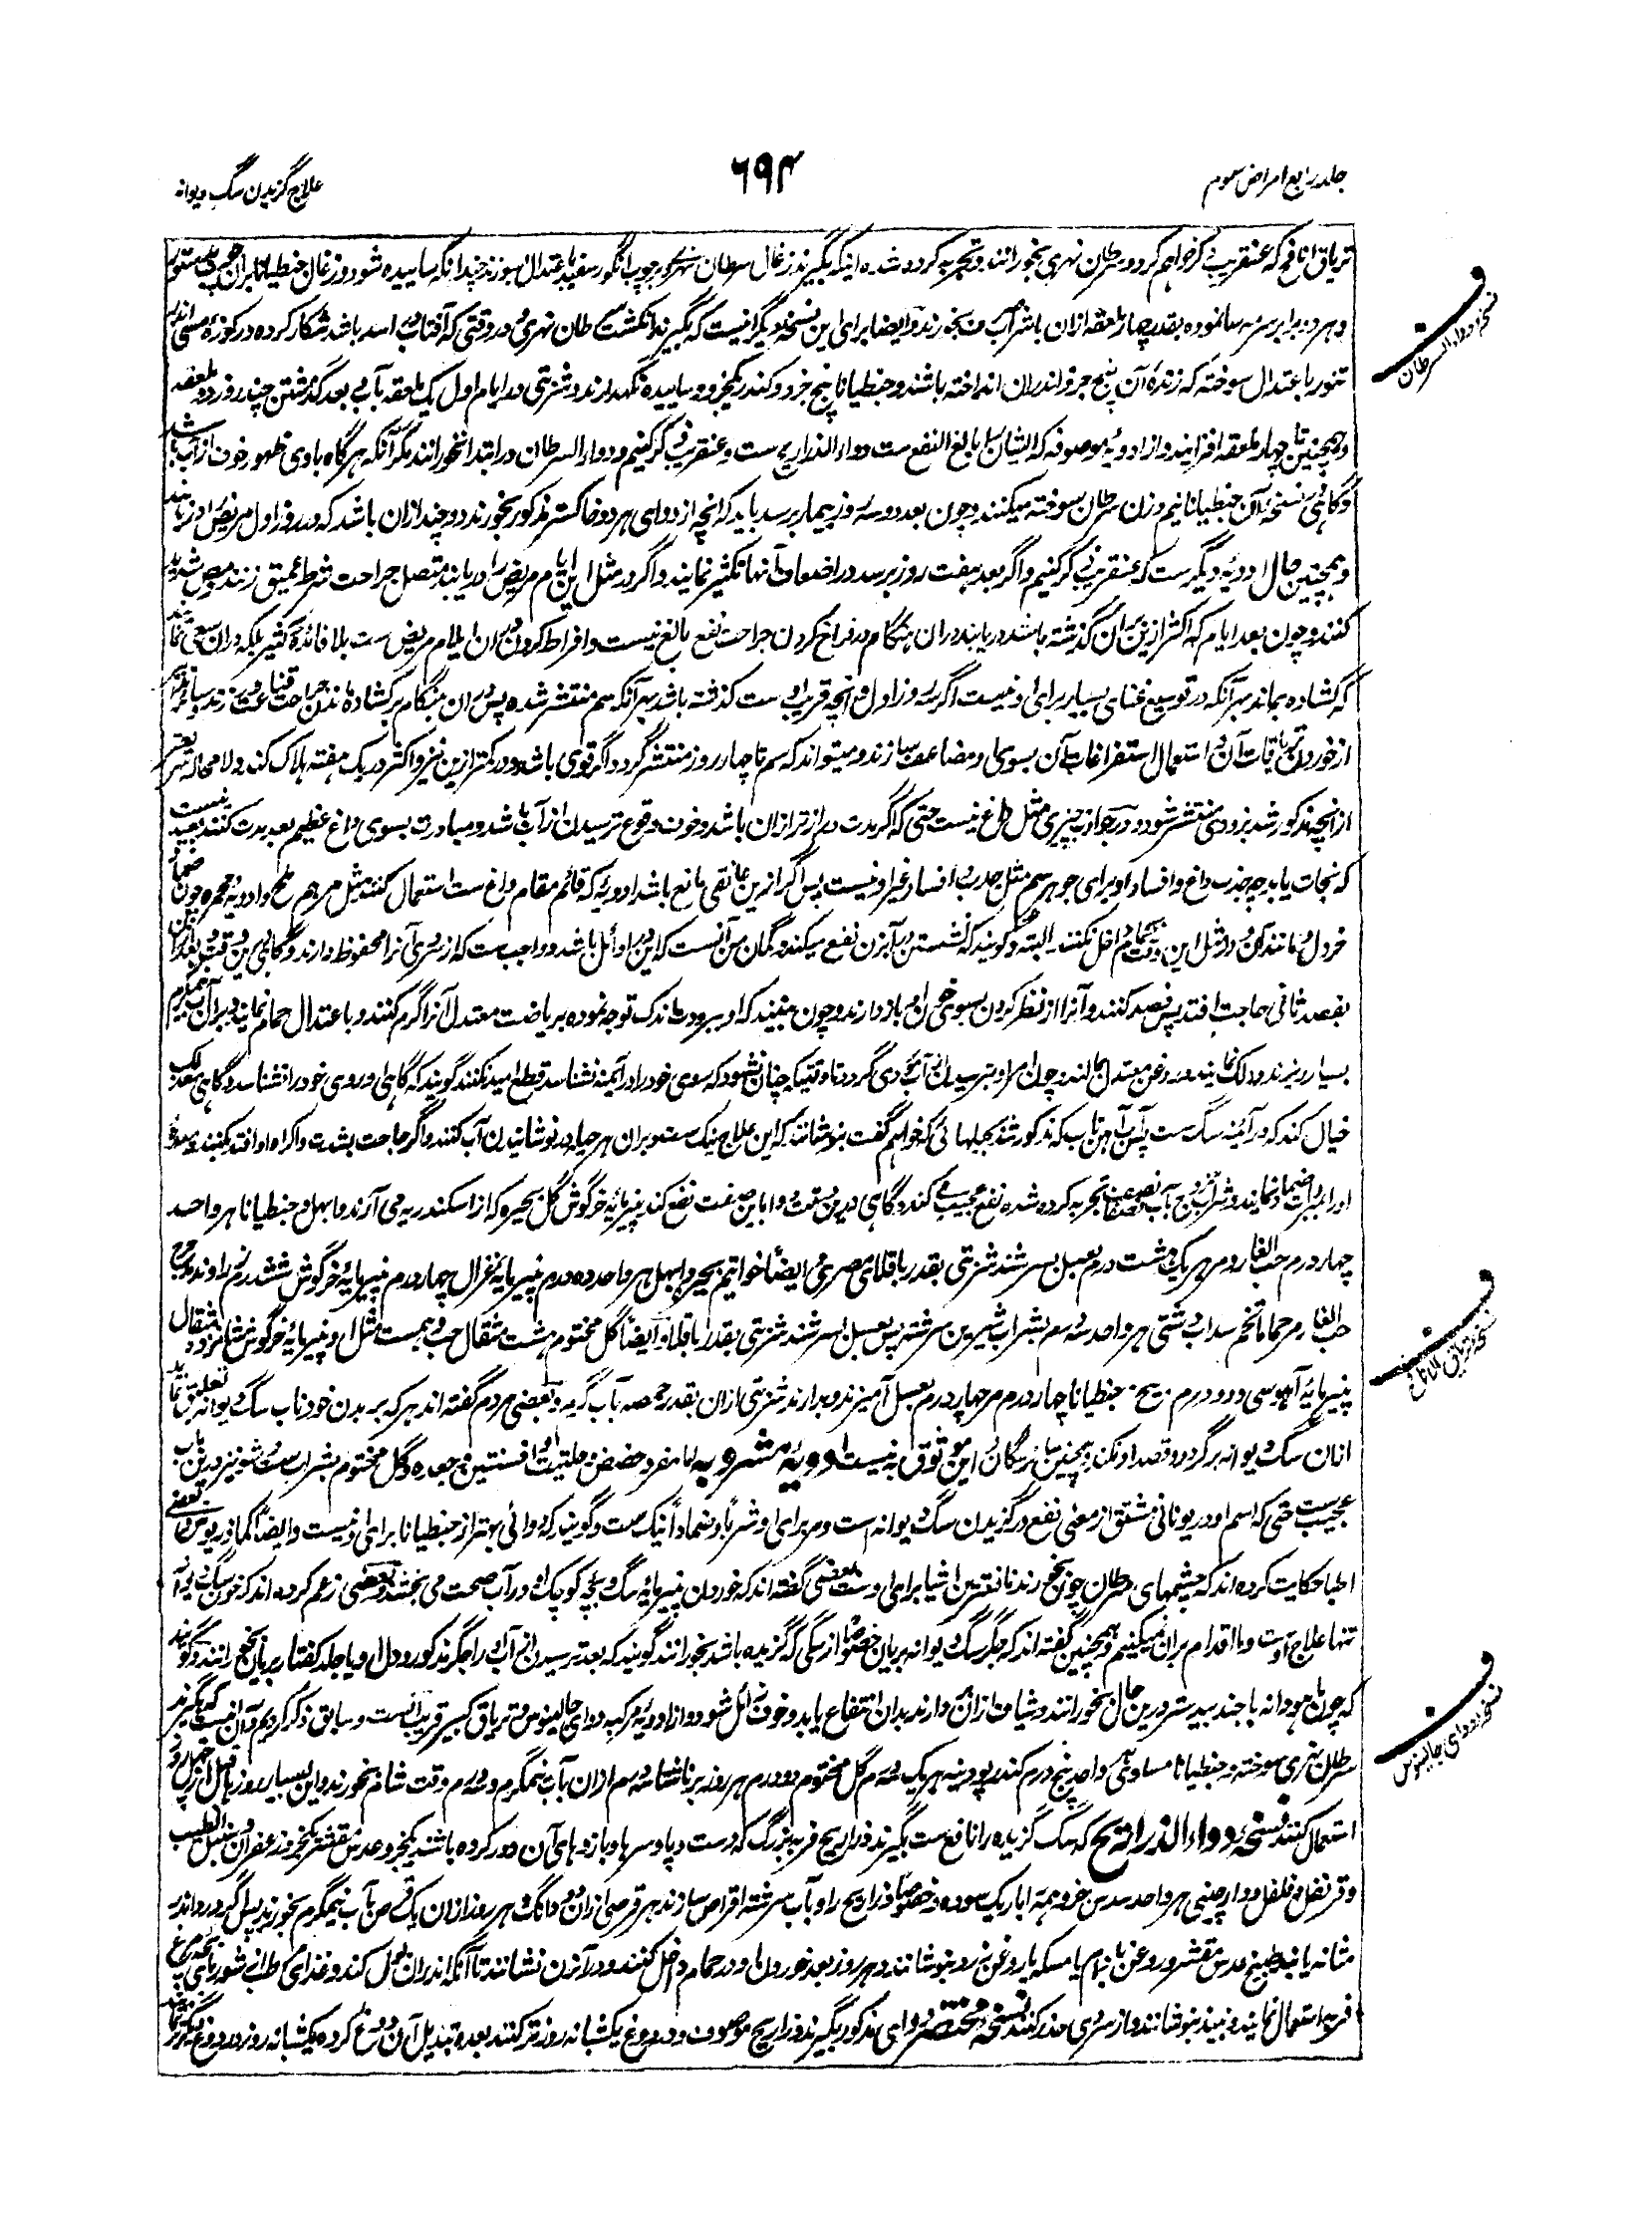 جلد رابع امراض سموم
۶۹۴
علاج گزیدن سگ دیوانه
تریاق انافع که عنقریب ذکر خواهم کرد و سرطان نهری بخورانند و تجربه کرده شده اینکه بگیرند زغال سرطان نهری بچوب انگور سفید باعتدال بسوزند چندانکه ساییده شود و زغال جنطیانا
و هر دو برابر سرمه سا نموده بقدر چهار ملعقه ازان باشراب صرف بخورند و ایضا برای این نسخه دیگر اینست که بگیرند انگشت سرطان نهری در وقتی که آفتاب در اسد باشد شکار کرده در کوزه مسی اندر
تنور باعتدال سوخته که زنده آن پنج جزو اندران انداخته باشند و جنطیانا پنج جزو و کندر یکجزو و ساییده نگهدارند و شربتی در ایام اول یک ملعقه بآب و بعد گذشتن چند روز دو ملعقه
و همچنین تا چهار ملعقه افزایند و از ادویه موصوفه که ایشان را بالغ النفع ست دواء الذراریح ست و عنقریب ذکر کنیم و دواء السرطان در ابتدا بخورانند مگر آنکه هرگاه بادی ظهور خوف از آب باشد
و گاهی در نسخه آن جنطیانا نیم وزن سرطان سوخته میکنند و چون بعد دو سه روز بیمار برسد باید که انچه از دوای هر دو خاکستر مذکور بخورند دو چند ازان باشد که در روز اول مریض را دادند
و همچنین حال ادویه دیگرست که عنقریب ذکر کنیم و اگر بعد هفت روز برسد در اضعاف آنها تکثیر نمایند و اگر در مثل این ایام مریض را دریابند متصل جراحت شرط عمیق زنند و مص شدید
کنند و چون بعد ایام که اکثر ازین بران گذشته باشد دریابند دران هنگام در فراخ کردن جراحت نفع بالغ نیست و افراط کردن دران ایلام مریض ست بلا فائده کثیر بلکه دران سعی نمایند
که کشاده بماند بهر آنکه در توسیع غنای بسیار برای او نیست اگر سه روز اول و انچه قریب اوست گذشته باشد بهر آنکه سم منتشر شده پس دران هنگام بر کشاده ماندن جراحت قناعت ورزند
از خوردن تریاقات آن و استعمال استفراغات آن بسوی او مضاعف سازند و میتواند که سم تا چهار روز منتشر گردد اگر قوی باشد و در کمتر ازین نیز و اکثر در یک هفته هلاک کند و لا محاله
از انچه مذکور شد بزودی منتشر شود و در جواذب چیزی مثل داغ نیست حتی که اگر مدت دراز تر ازان باشد و خوف وقوع ترسیدن از آب باشد و مبادرت بسوی داغ عظیم بعد مدت کنند بعید نیست
که نجات یابد چه جذب داغ و افساد او برای جوهر سم مثل جذب و افساد غیر او نیست پس اگر ازین عائقی مانع باشد ادویه که قائم مقام داغ ست استعمال کنند مثل مرهم ملح و ادویه محمره چون ضماد
خردل و مانند آن و در مثل این وقت بحمام داخل نکنند البته و گویند که نشستن در آبزن نفع میکند و گمان من آنست که این در اوائل باشد و واجب ست که از سردی آنرا محفوظ دارند و گاهی درین وقت
بفصد ثانی حاجت افتد پس فصد کنند و آنرا از نظر کردن بسوی خون او باز دارند و چون ببینند که او ببرودت اندک توجه نموده بریاضت معتدل آنرا گرم کنند و باعتدال حمام نمایند و بران آب نیمگرم
بسیار ریزند و دلک نمایند و روغن معتدل بمالند و چون امر او بترسیدن از آب مودی گردد تا وقتیکه چنان نشود که روی خود را در آئینه نشناسد قطع امید نکنند گویند که گاهی او روی خود را نشناسد و گاهی
خیال کند که در آئینه سگ ست پس آب آهن تاب که مذکور شد بحیلهائی که خواهم گفت بنوشانند که این علاج نیک ست و بران هر حیله در نوشانیدن آب کنند و اگر حاجت بشدت و اکراه او افتد بکنند
او را بمبردات ضماد نمایند و شراب ممزوج بآب نصف تجربه کرده شده نفع عجیب می کند و گاهی درین وقت دوا باین صفت نفع کند پنیرمایه خرگوش گل بحیره که از اسکندریه می آرند و ابهل و جنطیانا هر واحد
چهار درم حب الغار و مر هر یک هشت درم بعسل بسرشند شربتی بقدر باقلای مصری ایضا خواتیم بحیره و ابهل هر واحد ده درم پنیرمایه غزال چهار درم پنیرمایه خرگوش ششدرم
حب الغار مر حماما تخم سداب دشتی هر واحد سه درم بشراب شیرین سرشته پس بعسل بسرشند شربتی بقدر باقلا و ایضا گل مختوم هشت مثقال حب و همست مثل او پنیرمایه خرگوش شانزده مثقال
پنیرمایه آهو سی و دو درم بیخ جنطیانا چهار درم مر چهار درم بعسل آمیزند و بدارند شربتی ازان بقدر حمصه بآب گرم و بعضی مردم گفته اند هر که بر بدن خود ناب سگ دیوانه تعلیق نماید
ازان سگ دیوانه برگردد و قصد او نکند و همچنین سائر سگان و این موثوق به نیست ادویه مشروبه اما مفرد حضض و حلتیت و افسنتین و جعده و گل مختوم بشراب ست و شونیز درین باب
عجیب ست حتی که اسم او در یونانی مشتق از معنی نفع در گزیدن سگ دیوانه است و مر برای او شربا و ضمادا نیک ست و گویند که دوائی بهتر از جنطیانا برای او نیست و ایضا کماذریوس و بعضی
اطبا حکایت کرده اند که چشمهای سرطان چون بخورند نافعترین اشیا برای اوست و بعضی گفته اند که خوردن پنیرمایه سگ بچه کوچک او در آب صحت می بخشد و بعضی زعم کرده اند که خون سگ دیوانه
تنها علاج اوست و ما اقدام بران نمیکنیم و همچنین گفته اند که جگر سگ دیوانه بریان خصوصا از سگی که گزیده باشد بخورانند گویند که بعد ترسیدن از آب او را جگر مذکور و دل و یا جلد کفتار بریان بخورانند و گویند
که چون بهودانه با جند بیدستر درین حال بخورانند و شیاف ازان بردارند بدان انتفاع یابد و خوف زائل شود و از ادویه مرکبه دوای جالینوس و تریاق کبیر قریب آنست و سابق ذکر کردیم آن اینست که بگیرند
سرطان نهری سوخته و جنطیانا مساوی هر واحد پنج درم کندر پودینه هر یک سه درم گل مختوم دو درم هر روز برناشتا سه درم ازان بآب نیمگرم و سه درم وقت شام بخورند و این بسیار روز قبل از چهل روز
استعمال کنند نسخه دواء الذراریح که سگ گزیده را نافع ست بگیرند ذراریح فربه بزرگ که دست و پا و سرها و بازوهای آن دور کرده باشند یکجزو عدس مقشر یکجزو زعفران سنبل الطیب
و قرنفل و فلفل و دارچینی هر واحد سدس جزو همه را باریک سوده خصوصا ذراریح را و بآب سرشته اقراص سازند هر قرصی ازان دو دانگ و هر روز ازان یک قرص بآب نیمگرم بخورند پس اگر درد اندر
مثانه یابند طبیخ عدس مقشر و روغن بادام یا مسکه یا روغن زرد بنوشانند و هر روز بعد خوردن او در حمام داخل کنند و در آبزن نشانند تا آنکه اندران بول کند و غذای
فربه استعمال نمایند و نبیذ بنوشانند و از سردی حذر کنند نسخه مختصر دوای مذکور بگیرند ذراریح موصوف و در دوغ یکشبانه روز تر کنند بعده تبدیل آن دوغ کرده یکشبانه روز در دوغ دیگر
نسخه دواء السرطان
نسخه تریاق الانافع
نسخه دوای جالینوس